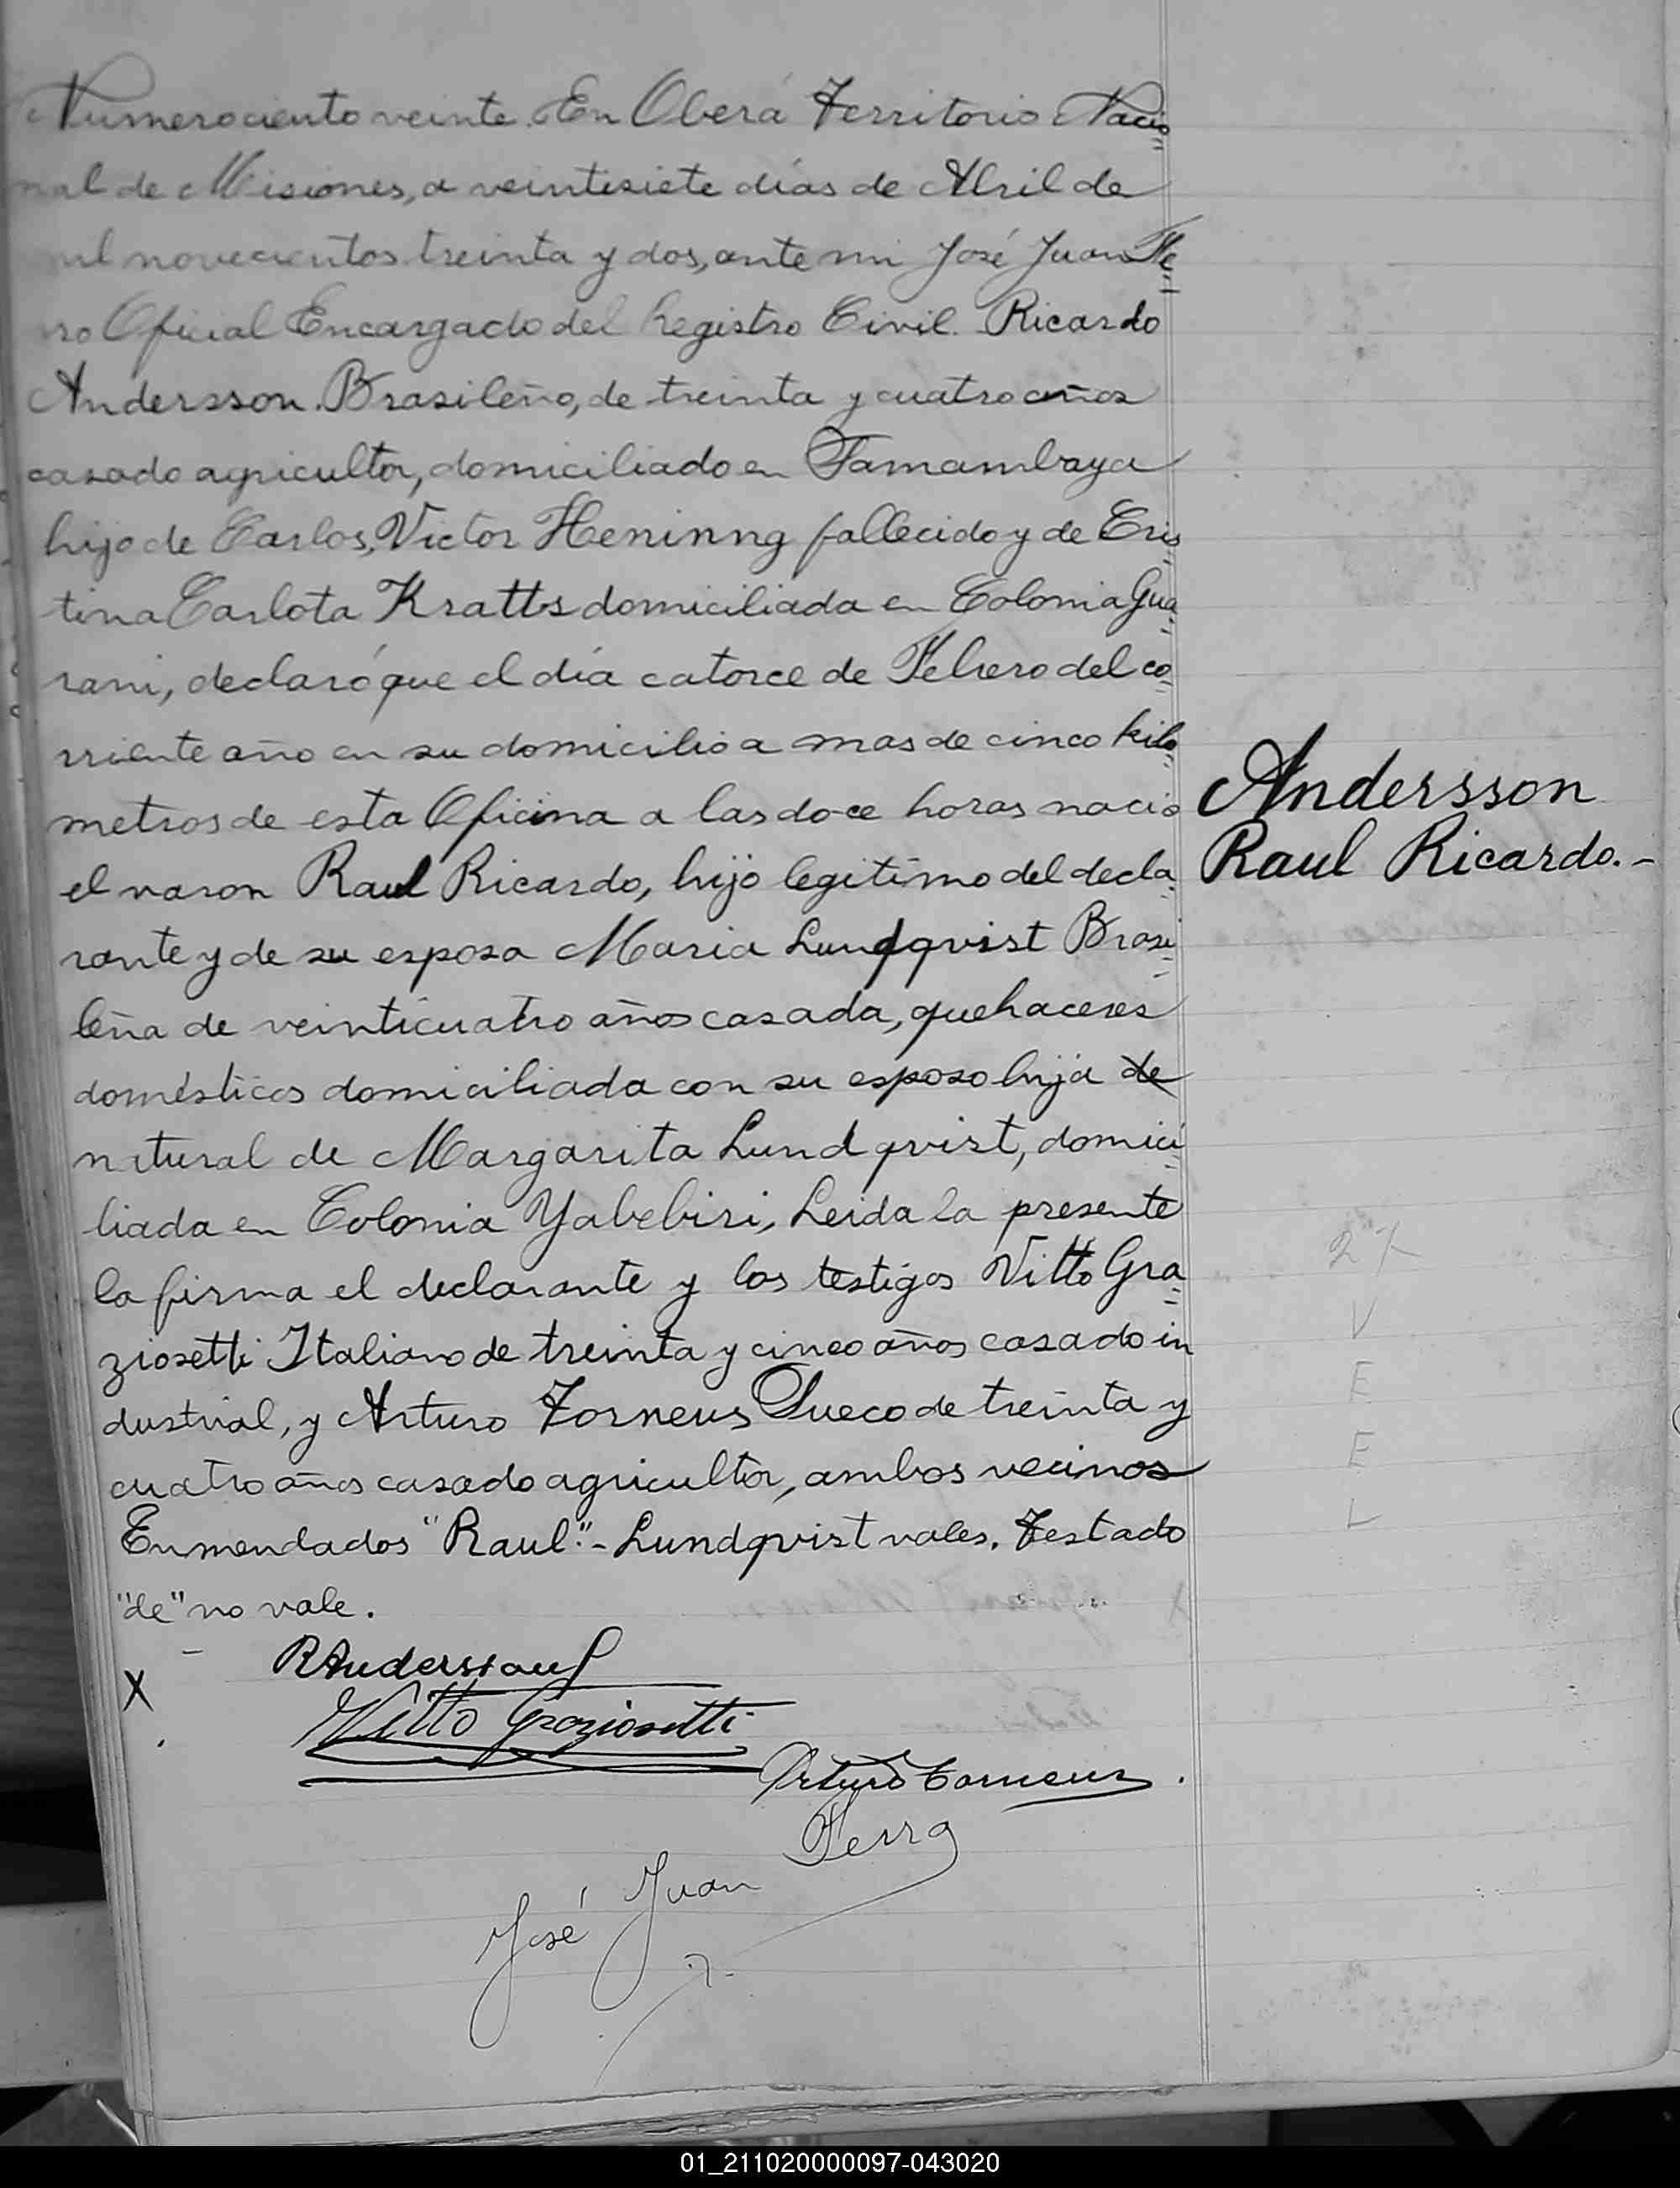 Numero ciento veinte. En Oberá Territorio Nacio
nal de Misiones, a veintisiete días de Abril de
mil novecientos treinta y dos, ante mi José Juan
Oficial Encargado del Registro Civil. Ricardo
Andersson. Brasileño, de treinta y cuatro años
casado agricultor, domiciliado en Tamambaya
hijo de Carlos, Victor Heninng fallecido y de Cris
tina Carlota Kratts domiciliada en Colonia Gua
rani, declaró que el día catorce de Febrero del co
rriente año en su domicilio a mas de cinco kilo
metros de esta Oficina a las doce horas nacio
el varon Raul Ricardo, hijo legitimo del decla
rante y de su esposa Maria Lundqvist Brasi
leña de veinticuatro años casada, quehaceres
domésticos domiciliada con su esposo hija de
natural de Margarita Lundqvist, domici
liada en Colonia Yabebiri, Leida la presente
la firma el declarante y los testigos Vitto Gra
ziosetti Italiano de treinta y cinco años casado in
dustrial, y Arturo Torneus Sueco de treinta y
cuatro años casado agricultor, ambos vecinos
Enmendados "Raul"- Lundqvist vales. Testado
"de" no vale.
Andersson
Raul Ricardo.-
27
V
E
E
L
X
RAndersson
Vitto Graziosetti
Arturo Torneus.
José Juan
01_211020000097-043020